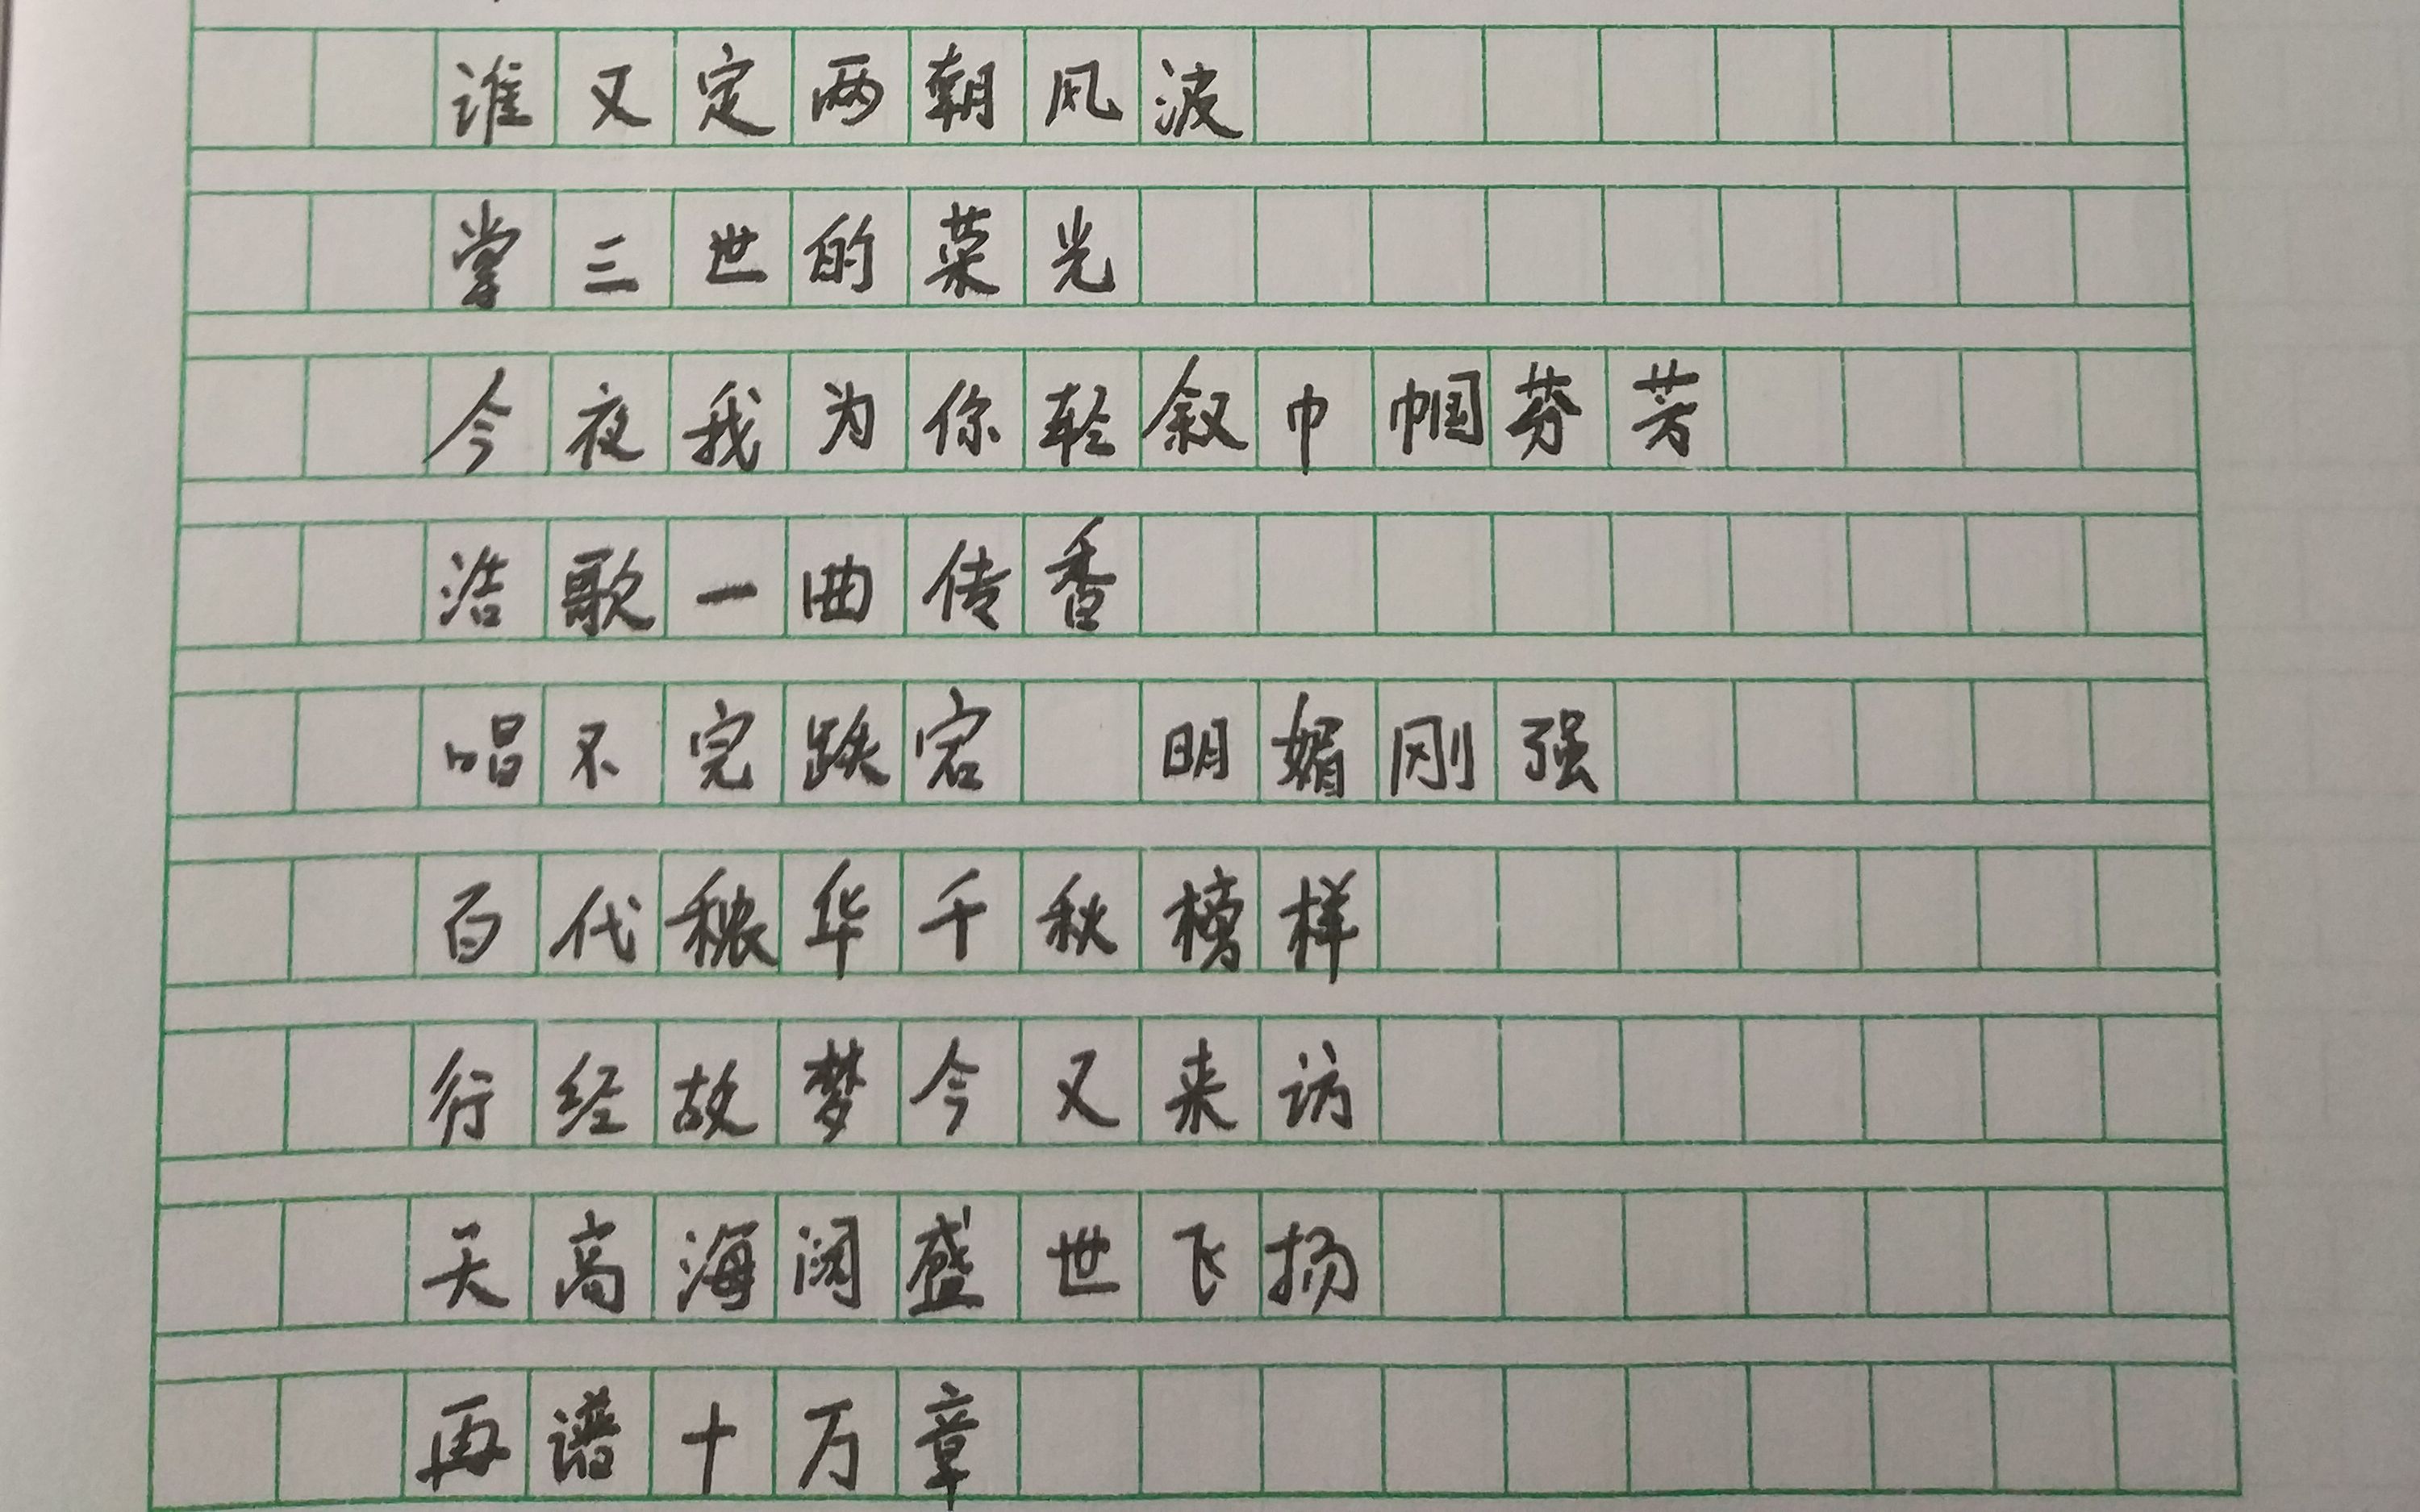 谁又定两朝风波
掌三世的荣光
今夜我为你轻叙巾帼芬芳
浩歌一曲传香
唱不完跌宕 明媚刚强
百代秾华千秋榜样
行经故梦今又来访
天高海阔盛世飞扬
再谱十万章